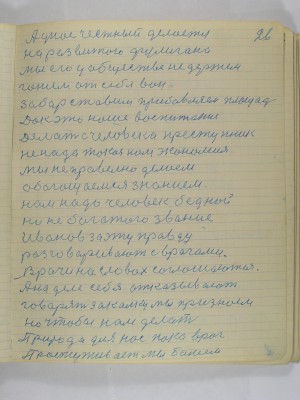 26
А у нас честный делается
на развитого дурмогана
мы его у общества не держем
гоним от себя вон.
забор ставим прибовляем площад
Вы это наше воспитаны
Делать человика преступник
не нада такая нам экономия.
мы не правелно делаем
обогощаемся знанием.
нам надо человек бедной
но не богатого звание
Иванов за эту правду
разговаривают с врачами.
Врачи на словах соглошаются.
А на деле себя отказывают
говарят закалку мы признаем
но чтобы нам делат
Природа для нас пока враг
Простуживает мы балеем